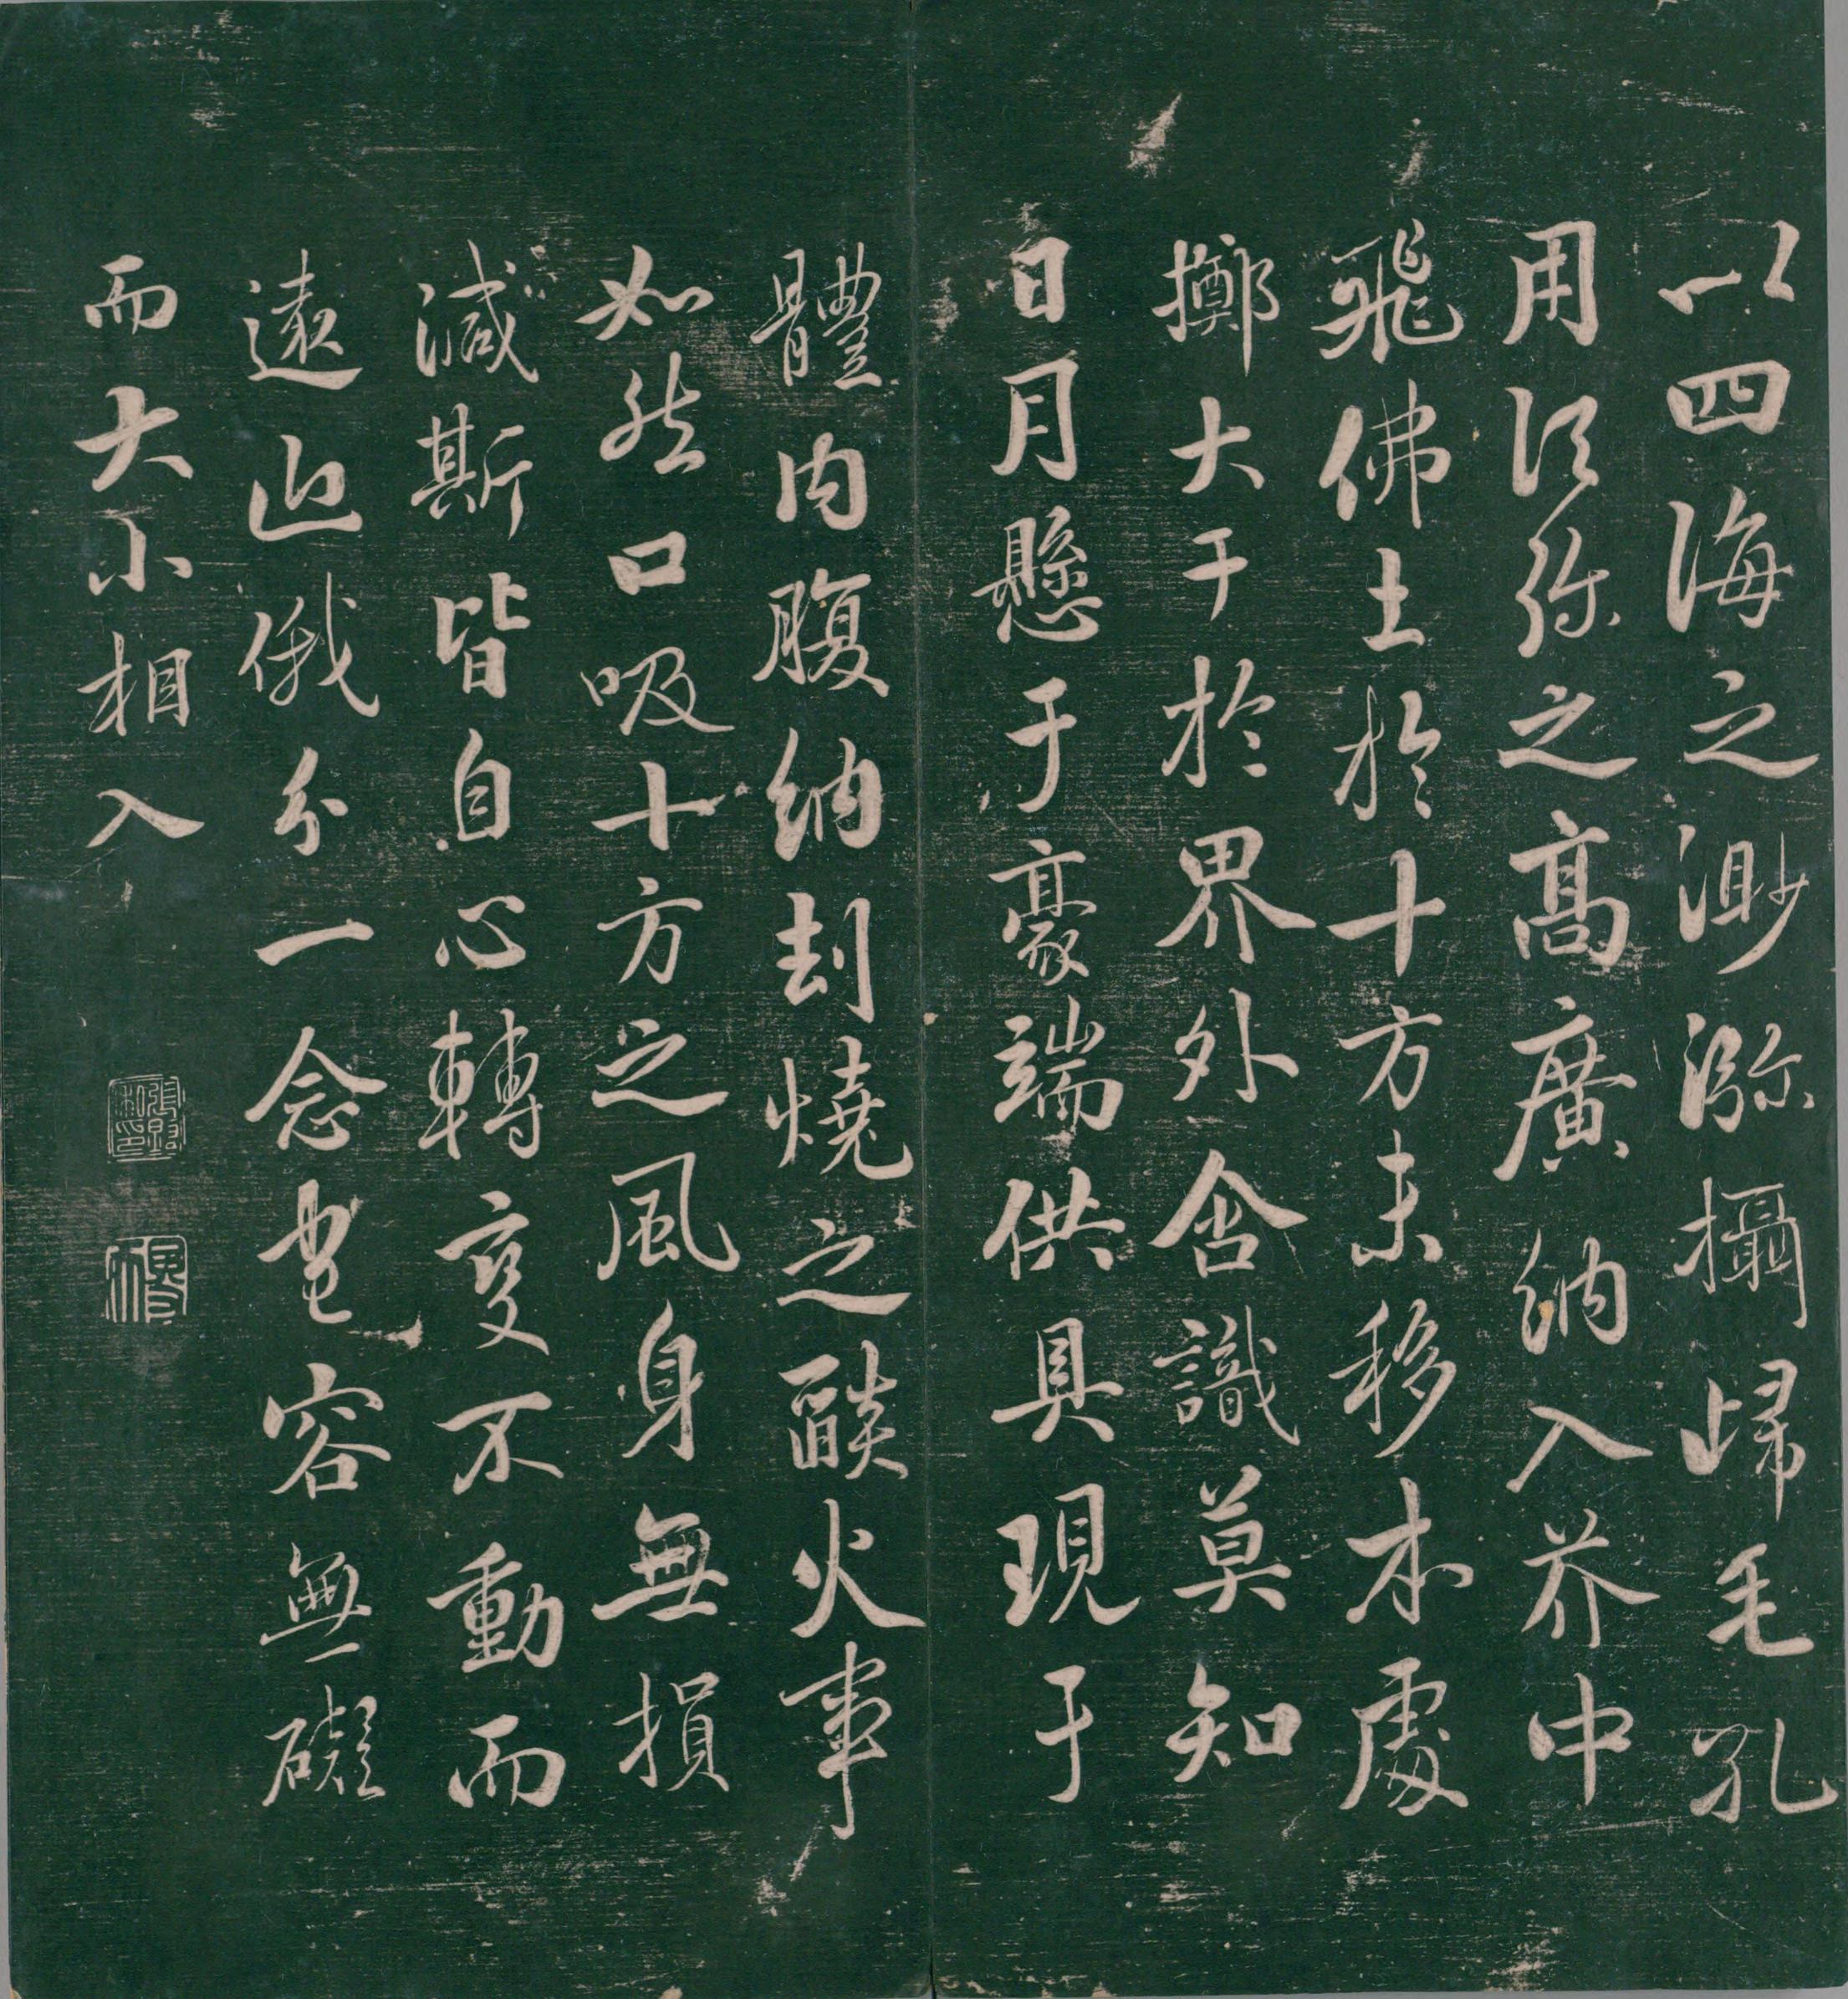 以四海之渺㳽攝歸毛孔
用須弥之高廣納入芥中
飛佛土於十方未移本處
擲大千於界外含識莫知
日月懸于豪端供具現于
體内腹納刦燒之燄火事
如然口吸十方之風身無損
減斯皆自心轉變不動而
遠近俄分一念包容無礙
而大小相入